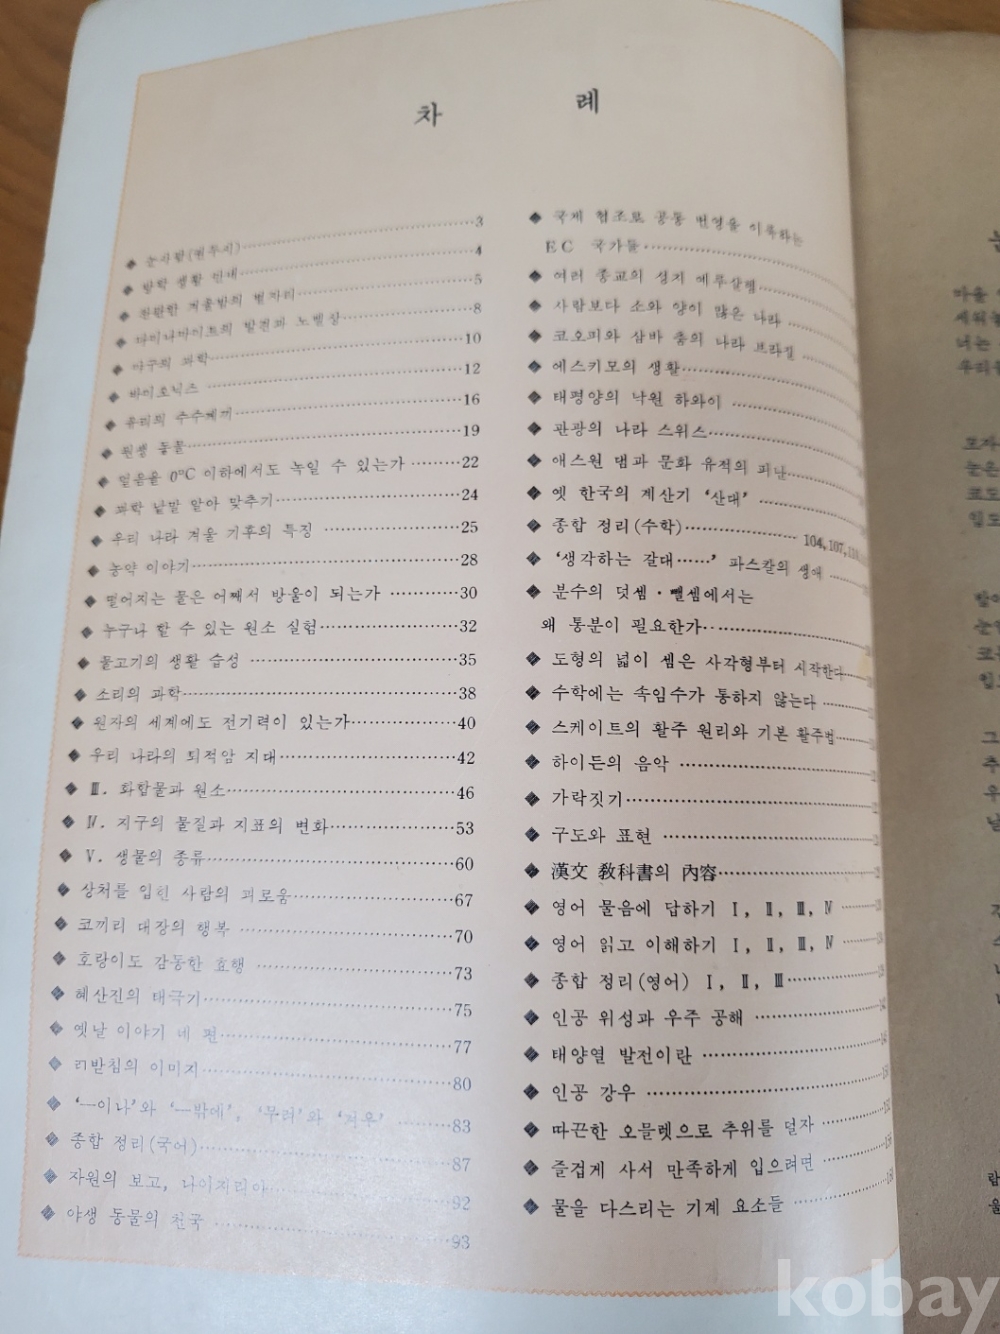 차 례
◆ 눈사람(권두시) 3
◆ 방학 생활 안내 4
◆ 찬란한 겨울밤의 별자리 5
◆ 다이나마이트의 발견과 노벨상 8
◆ 야구의 과학 10
◆ 바이오닉스 12
◆ 유리의 수수께끼 16
◆ 원생 동물 19
◆ 얼음을 0°C 이하에서도 녹일 수 있는가 22
◆ 과학 낱말 알아 맞추기 24
◆ 우리 나라 겨울 기후의 특징 25
◆ 농약 이야기 28
◆ 떨어지는 물은 어째서 방울이 되는가 30
◆ 누구나 할 수 있는 원소 실험 32
◆ 물고기의 생활 습성 35
◆ 소리의 과학 38
◆ 원자의 세계에도 전기력이 있는가 40
◆ 우리 나라의 퇴적암 지대 42
◆ Ⅲ. 화합물과 원소 46
◆ Ⅳ. 지구의 물질과 지표의 변화 53
◆ Ⅴ. 생물의 종류 60
◆ 상처를 입힌 사람의 괴로움 67
◆ 코끼리 대장의 행복 70
◆ 호랑이도 감동한 효행 73
◆ 혜산진의 태극기 75
◆ 옛날 이야기 네 편 77
◆ ㄹ받침의 이미지 80
◆ ‘─이나’와 ‘─밖에’, ‘무려’와 ‘겨우’ 83
◆ 종합 정리(국어) 87
◆ 자원의 보고, 나이지리아 92
◆ 야생 동물의 천국 93
◆ 국제 협조로 공동 번영을 이룩하는
EC 국가들
◆ 여러 종교의 성지 예루살렘
◆ 사람보다 소와 양이 많은 나라
◆ 코오피와 삼바 춤의 나라 브라질
◆ 에스키모의 생활
◆ 태평양의 낙원 하와이
◆ 관광의 나라 스위스
◆ 애스원 댐과 문화 유적의 피난
◆ 옛 한국의 계산기 ‘산대’
◆ 종합 정리(수학) 104, 107,
◆ ‘생각하는 갈대……’ 파스칼의 생애
◆ 분수의 덧셈·뺄셈에서는
왜 통분이 필요한가
◆ 도형의 넓이 셈은 사각형부터 시작한다
◆ 수학에는 속임수가 통하지 않는다
◆ 스케이트의 활주 원리와 기본 활주법
◆ 하이든의 음악
◆ 가락짓기
◆ 구도와 표현
◆ 漢文 敎科書의 內容
◆ 영어 물음에 답하기 Ⅰ, Ⅱ, Ⅲ, Ⅳ
◆ 영어 읽고 이해하기 Ⅰ, Ⅱ, Ⅲ, Ⅳ
◆ 종합 정리(영어) Ⅰ, Ⅱ, Ⅲ
◆ 인공 위성과 우주 공해
◆ 태양열 발전이란
◆ 인공 강우
◆ 따끈한 오믈렛으로 추위를 덜자
◆ 즐겁게 사서 만족하게 입으려면
◆ 물을 다스리는 기계 요소들
kobay